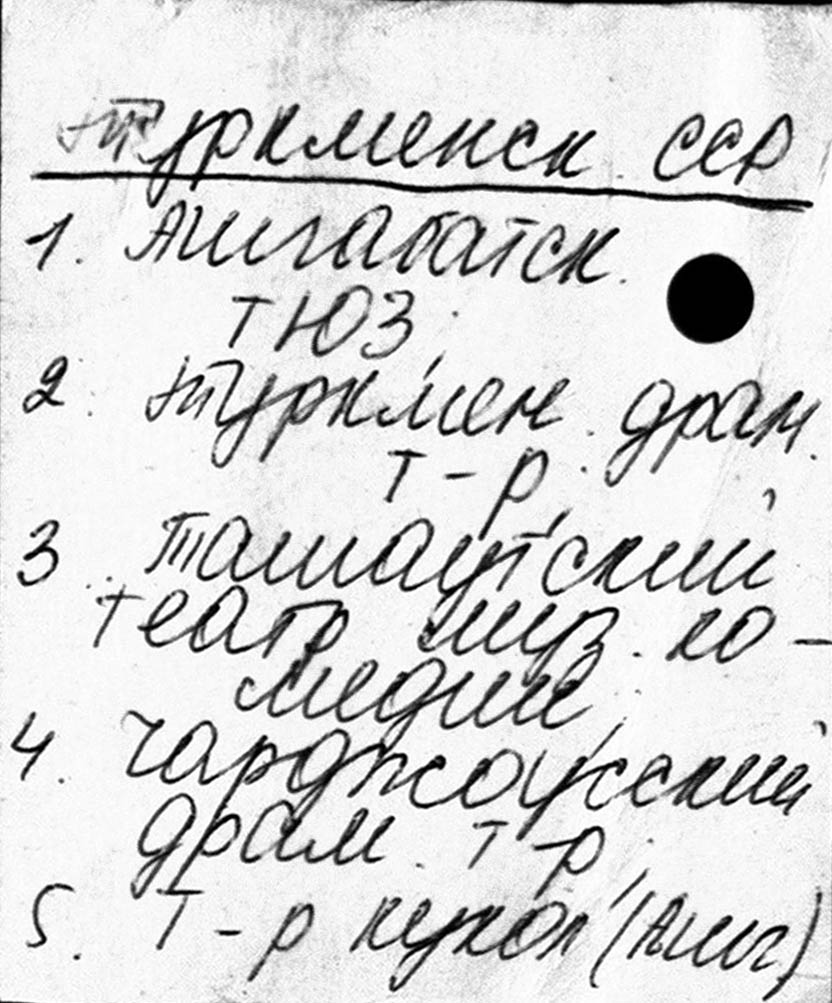 Туркменск. ССР
1. Ашгабатск.
ТЮЗ
2. Туркмен. драм.
т-р.
3. Ташаузский
театр муз. ко-
медии
4. Чарджоусский
драм. т-р
5. Т-р кукол (Ашг)